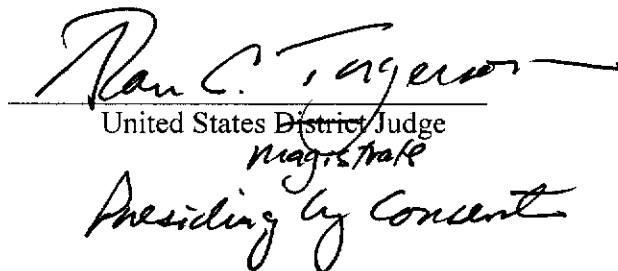 Alan C. Torgerson
United States District Judge
magistrate
Presiding by Consent